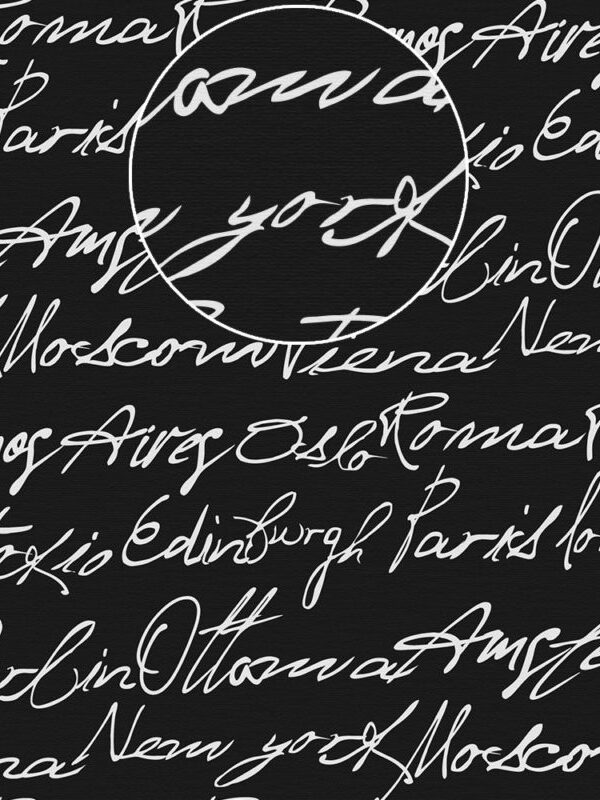 Roma Buenos Aires
Paris kio Ed
Amst rlin Ot
Moscow Viena New
nos Aires Oslo Roma
Tokio Edinburgh Paris lo
Berlin Ottawa Amste
na New york Mosco
awa
york